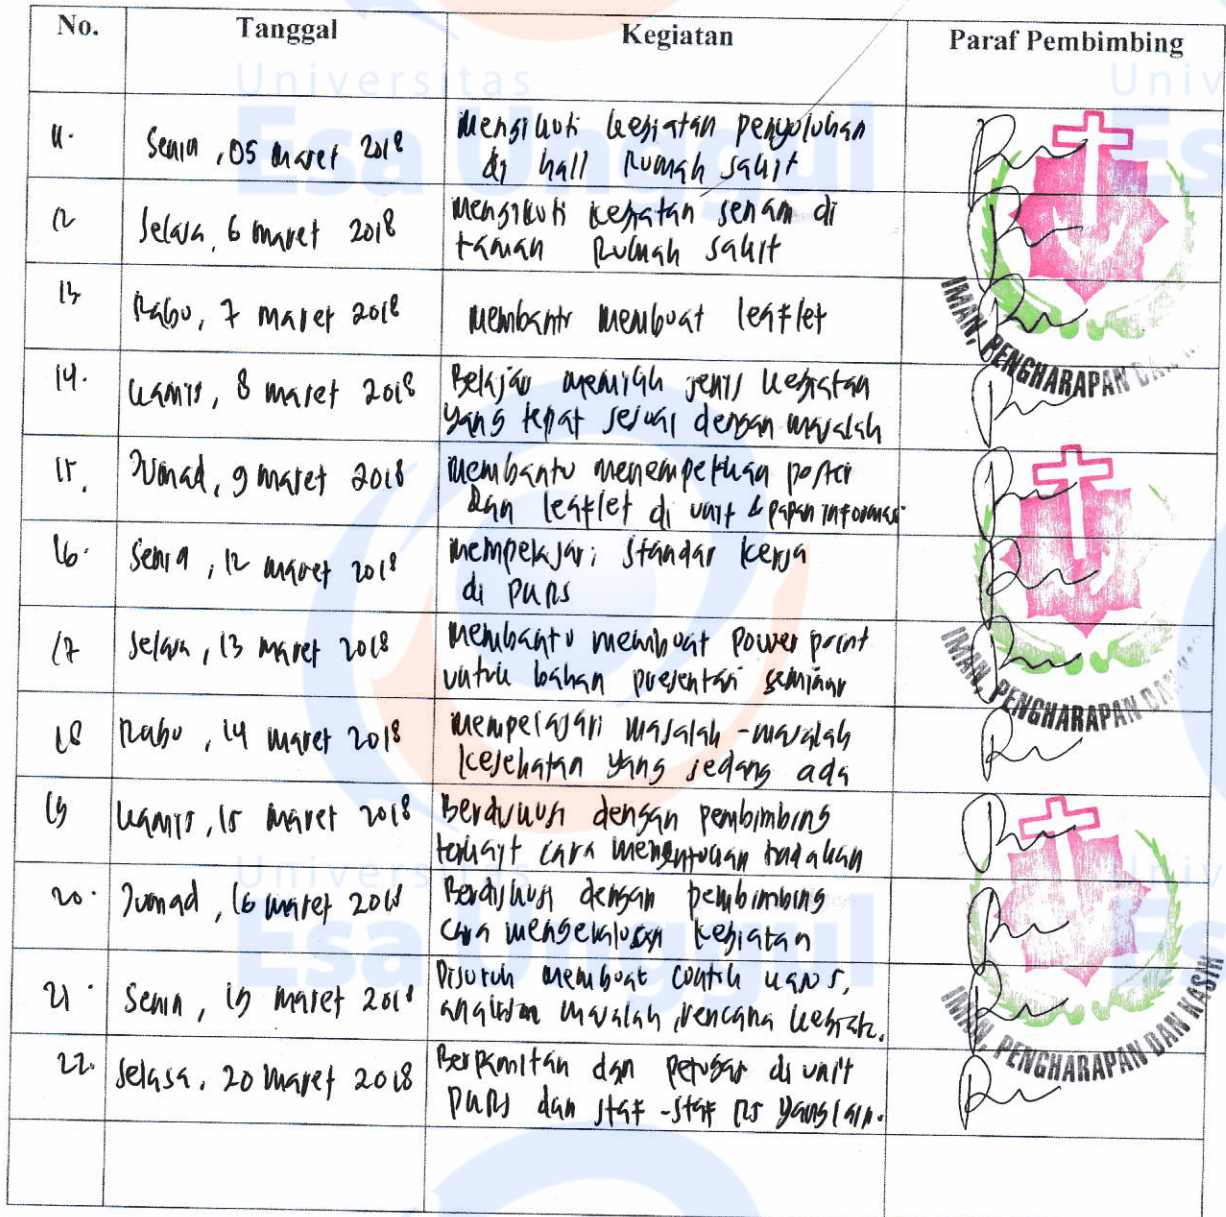 No. Tanggal Kegiatan Paraf Pembimbing
Universitas
Esa Unggul
11. Senin, 05 Maret 2018 Mengikuti kegiatan penyuluhan
di hall Rumah Sakit
12 Selasa, 6 Maret 2018 Mengikuti kegiatan senam di
taman Rumah Sakit
13 Rabu, 7 Maret 2018 Membantu membuat leaflet
IMAN, PENGHARAPAN
14. Kamis, 8 Maret 2018 Belajar memilih jenis kegiatan
yang tepat sesuai dengan masalah
15. Jumad, 9 Maret 2018 Membantu menempelkan poster
dan leaflet di unit & papan informasi
16. Senin, 12 Maret 2018 Mempelajari standar kerja
di PKRS
17 Selasa, 13 Maret 2018 Membantu membuat power point
untuk bahan presentasi seminar
IMAN, PENGHARAPAN DAN
18 Rabu, 14 Maret 2018 Mempelajari masalah-masalah
kesehatan yang sedang ada
19 Kamis, 15 Maret 2018 Berdiskusi dengan pembimbing
terkait cara menentukan tindakan
Universitas
Esa Unggul
20. Jumad, 16 Maret 2018 Berdiskusi dengan pembimbing
cara mengevaluasi kegiatan
21. Senin, 19 Maret 2018 Disuruh membuat contoh kasus,
masalah, rencana
IMAN, PENGHARAPAN DAN KASIH
22. Selasa, 20 Maret 2018 Berpamitan dgn petugas di unit
PKRS dan staf-staf RS yang lain.